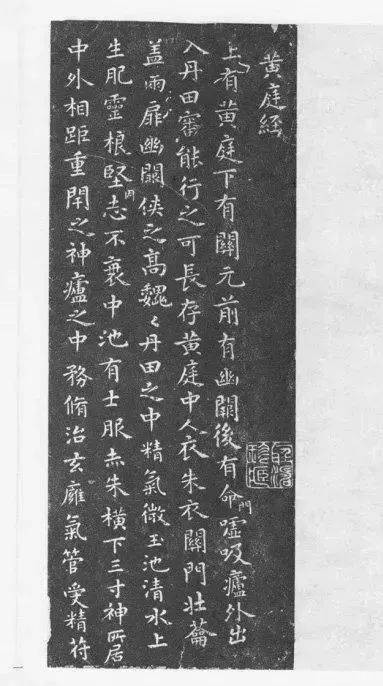 黄庭經
上有黄庭下有關元前有幽闕後有命門噓吸廬外出
入丹田審能行之可長存黄庭中人衣朱衣關門壯籥
盖兩扉幽闕俠之高魏〻丹田之中精氣微玉池清水上
生肥靈根堅志不衰中池有士服赤朱横下三寸神所居
中外相距重閇之神廬之中務脩治玄廱氣管受精符